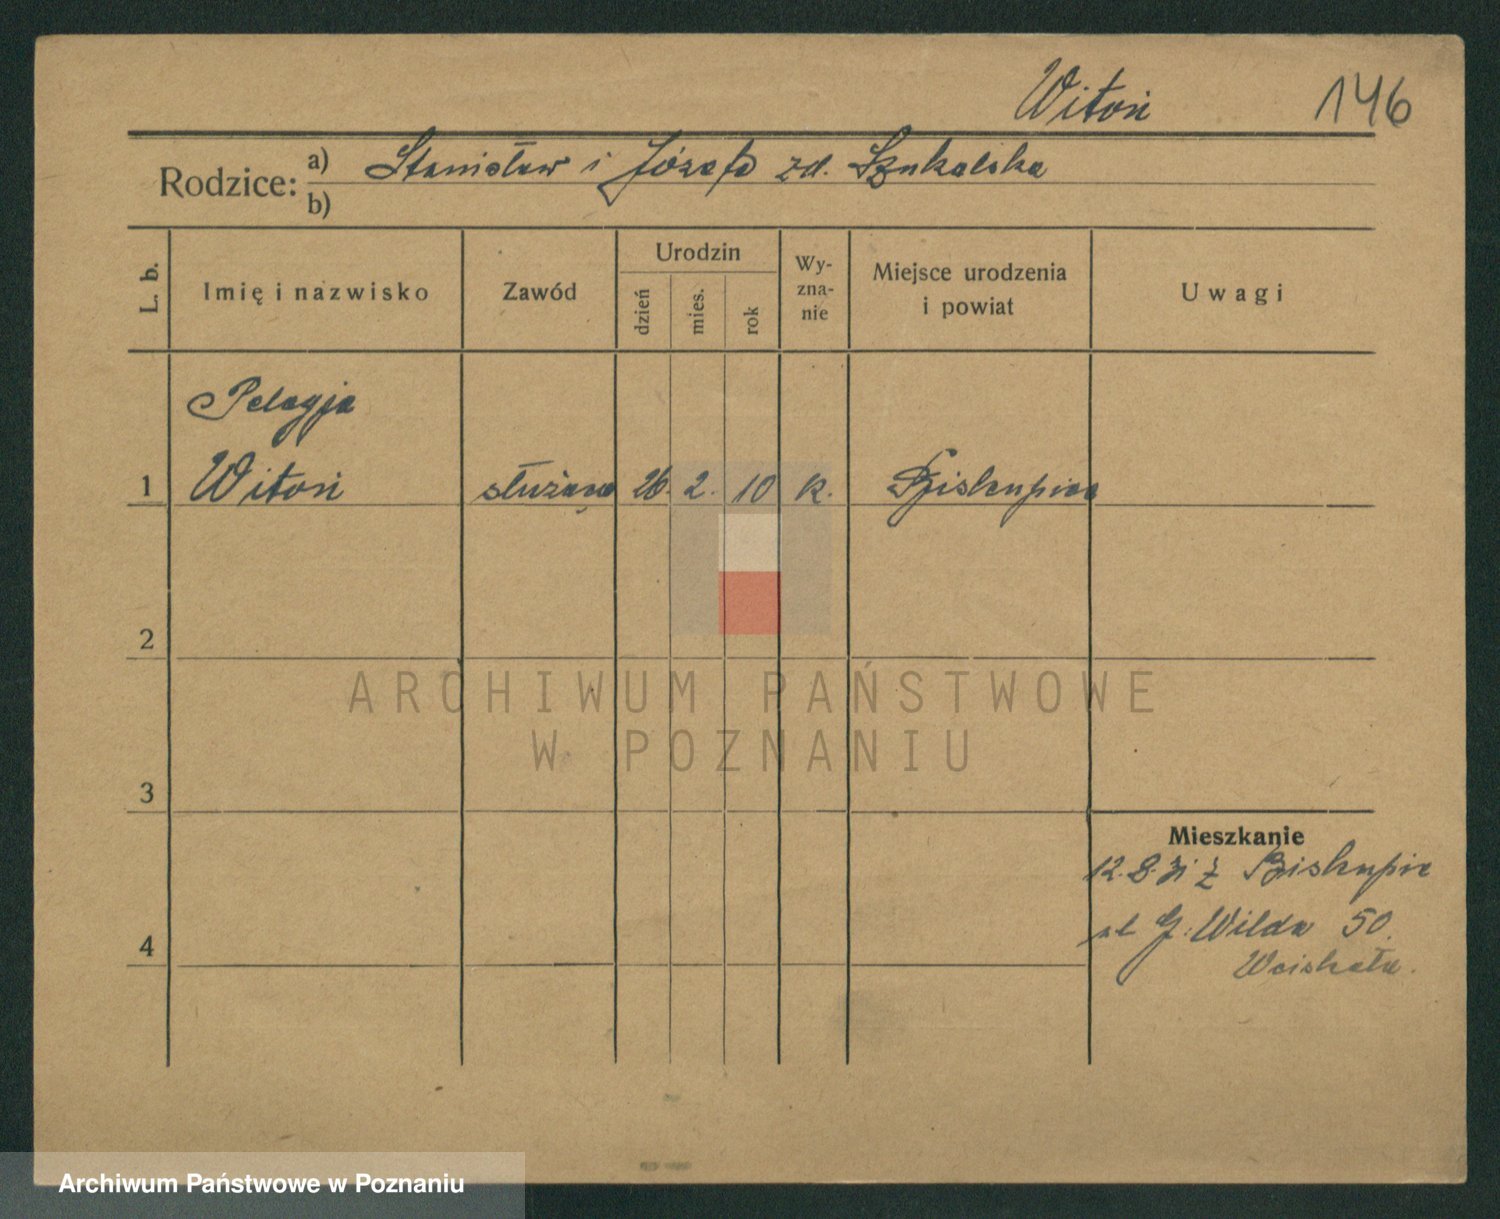 Witoń 146
Rodzice: a) Stanisław i Józefa zd. Szukalska
b)
L. b. Imię i nazwisko Zawód Urodzin dzień mies. rok Wy-zna-nie Miejsce urodzenia i powiat Uwagi
Pelagja
1 Witoń służąca 26. 2. 10 k. Biskupice
2
3
4
Mieszkanie
12.8.31 z Biskupic
G. Wilda 50.
ARCHIWUM PAŃSTWOWE
W POZNANIU
Archiwum Państwowe w Poznaniu